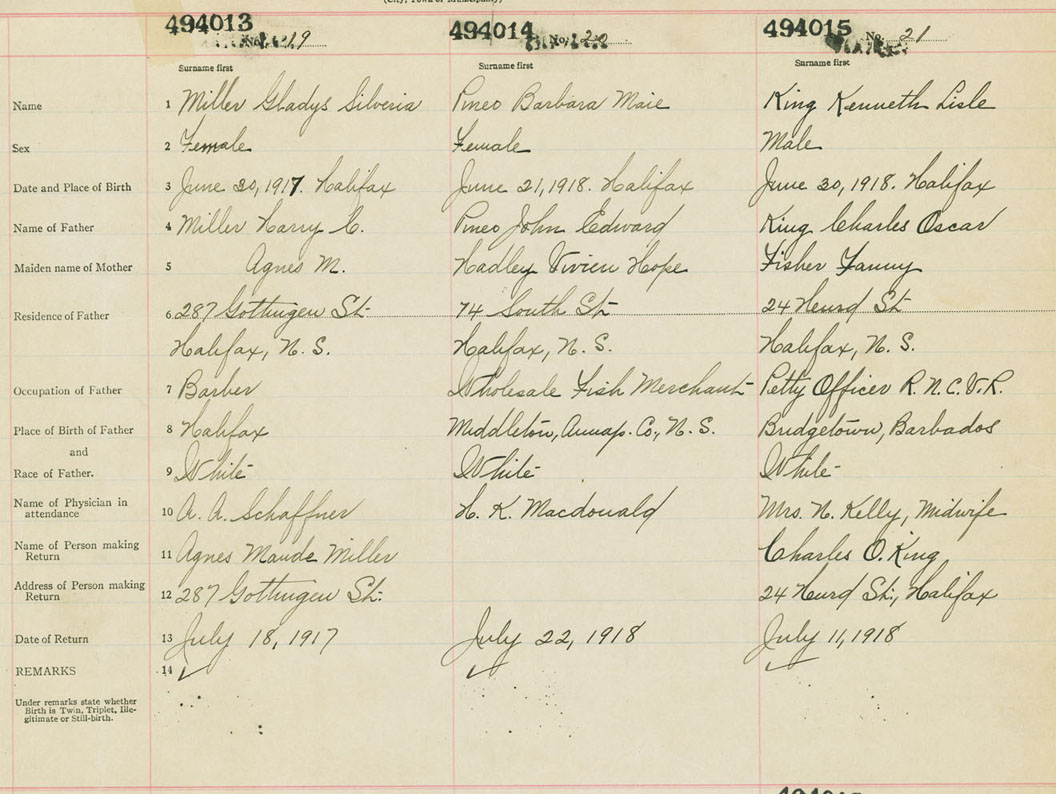 (City, Town or Municipality)
494013 494014 494015
No. 19 No. 20 No. 21
Surname first Surname first Surname first
Name 1 Miller Gladys Silveria Pineo Barbara Maie King Kenneth Lisle
Sex 2 Female Female Male
Date and Place of Birth 3 June 30, 1917. Halifax June 21, 1918. Halifax June 30, 1918. Halifax
Name of Father 4 Miller Harry C. Pineo John Edward King Charles Oscar
Maiden name of Mother 5 Agnes M. Hadley Vivien Hope Fisher Fanny
Residence of Father 6 287 Gottingen St. 74 South St. 24 Hurd St.
Halifax, N. S. Halifax, N. S. Halifax, N. S.
Occupation of Father 7 Barber Wholesale Fish Merchant Petty Officer R. N. C. V. R.
Place of Birth of Father 8 Halifax Middleton, Annap. Co., N. S. Bridgetown, Barbados
and
Race of Father. 9 White White White
Name of Physician in
attendance 10 A. A. Schaffner H. K. Macdonald Mrs. N. Kelly, Midwife
Name of Person making
Return 11 Agnes Maude Miller Charles O. King
Address of Person making
Return 12 287 Gottingen St. 24 Hurd St., Halifax
Date of Return 13 July 18, 1917 July 22, 1918 July 11, 1918
REMARKS 14
Under remarks state whether
Birth is Twin, Triplet, Ille-
gitimate or Still-birth.